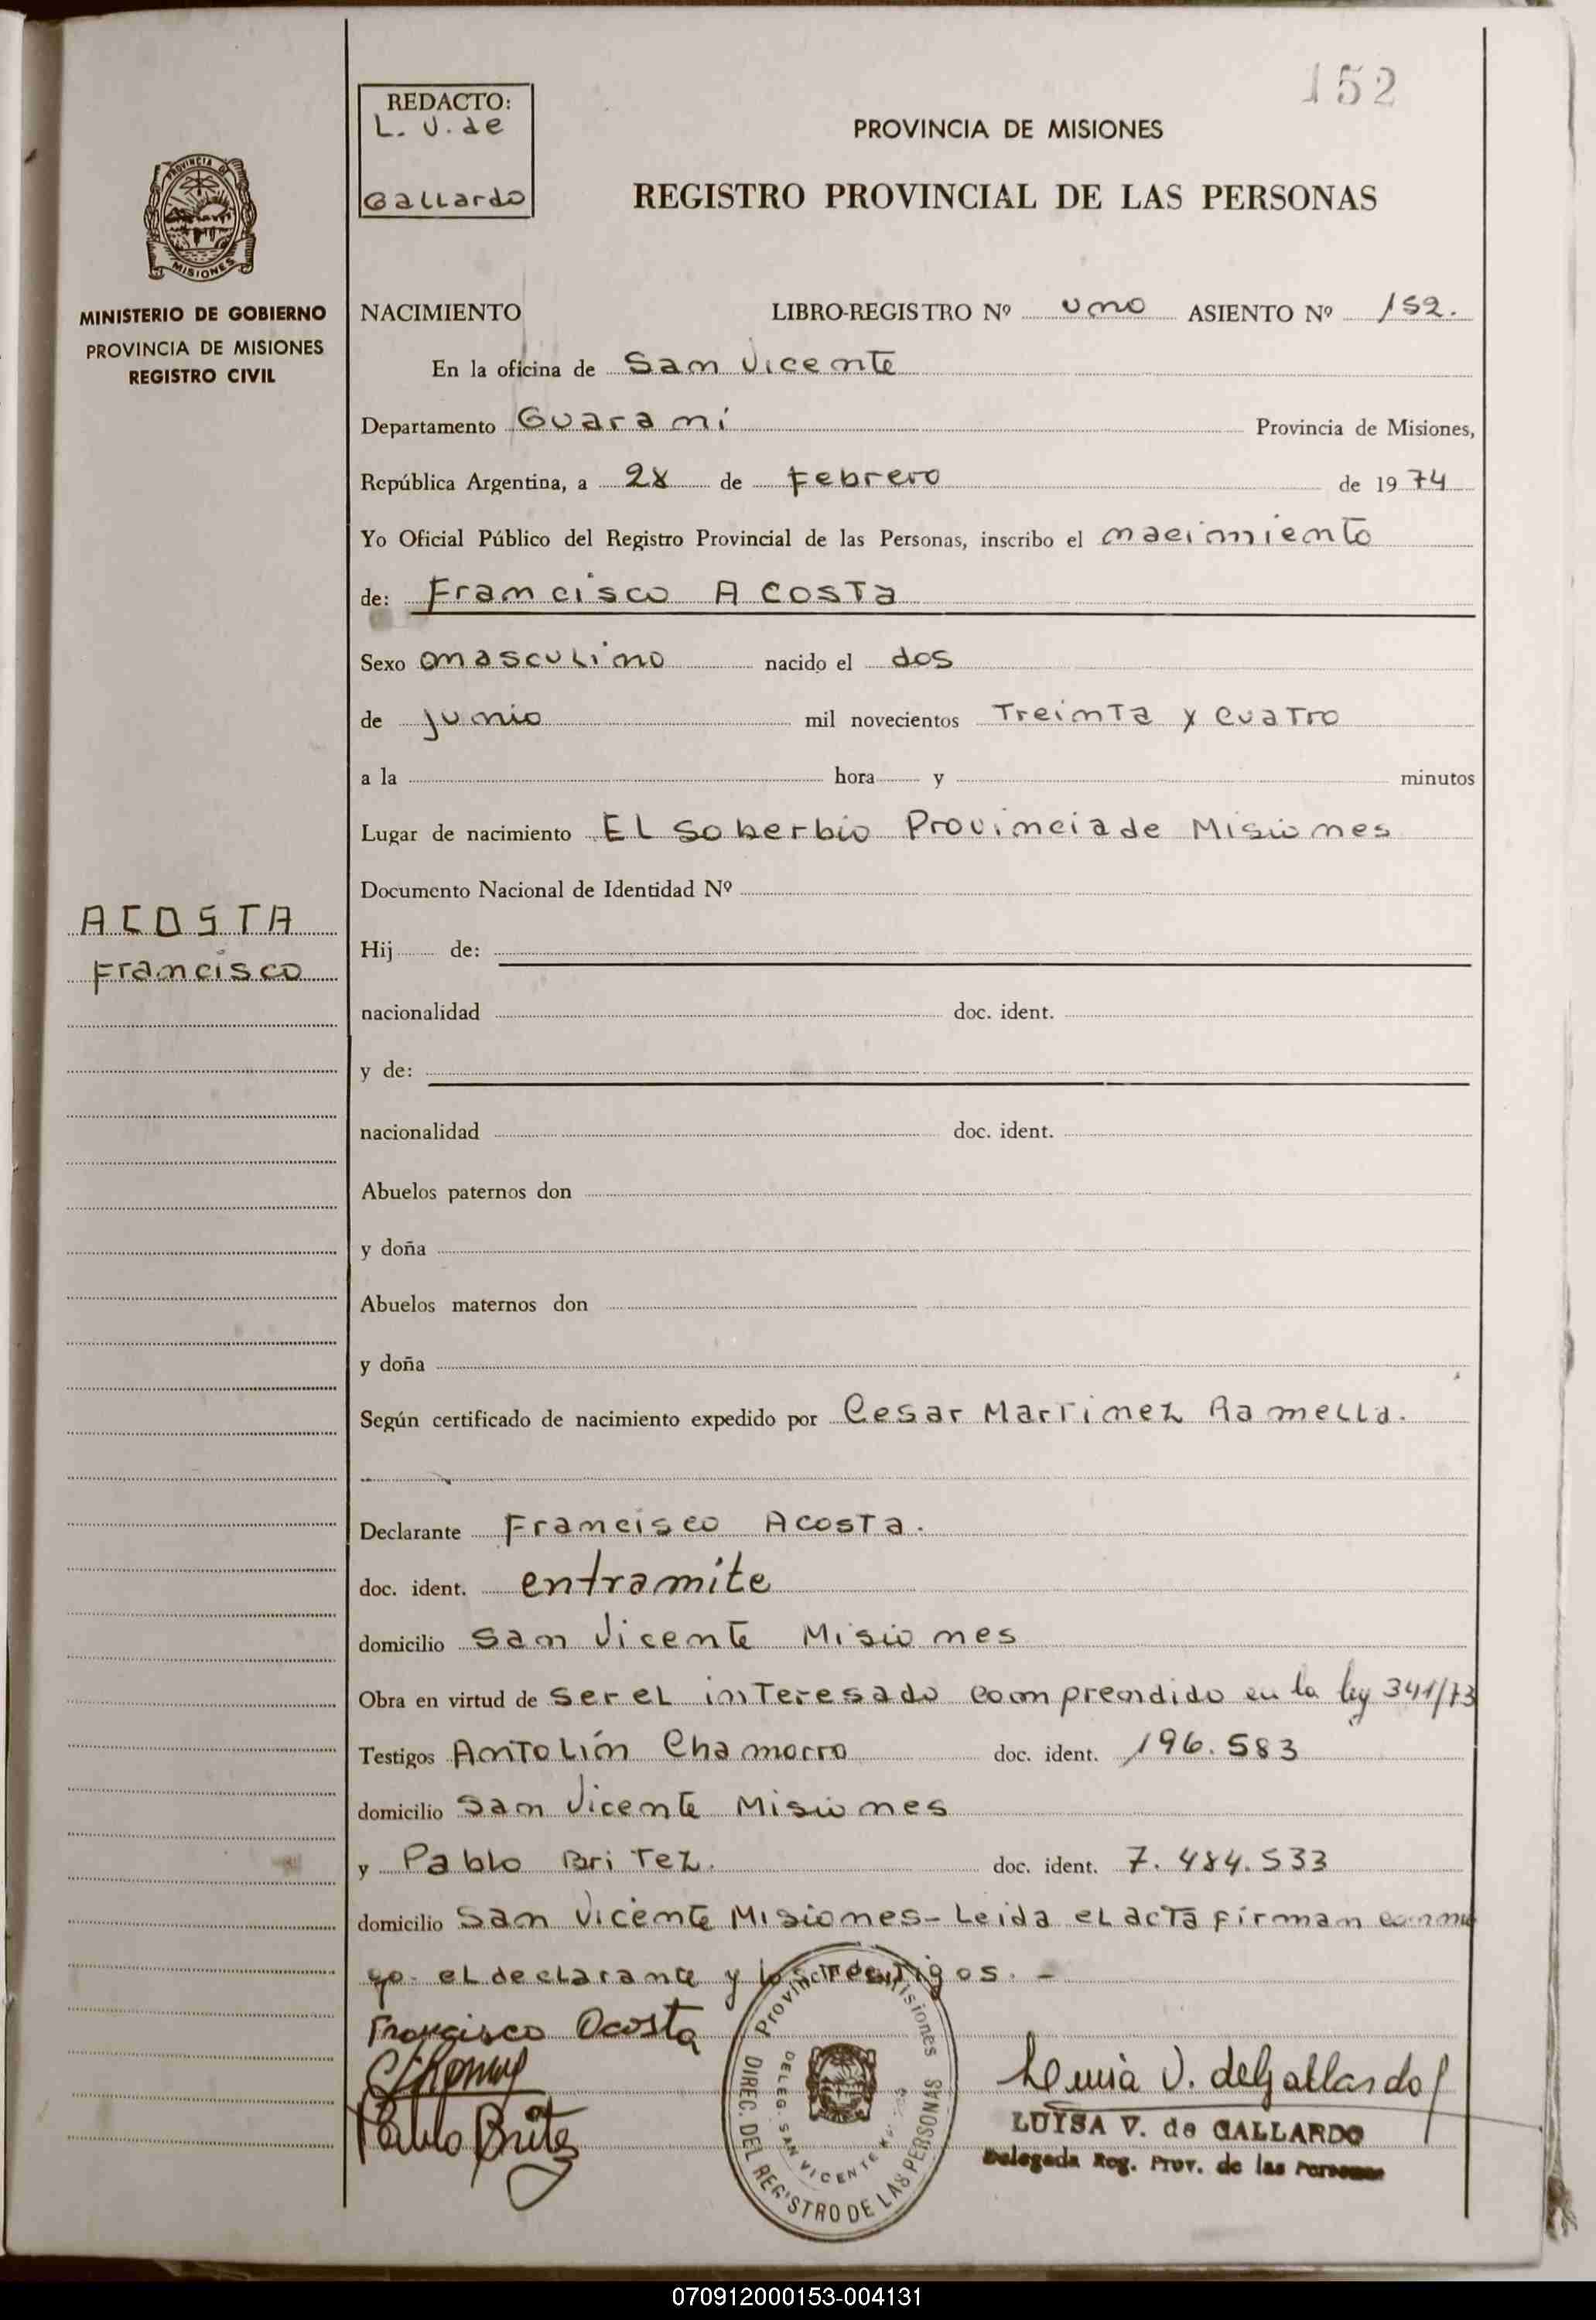 152
REDACTO:
L. V. de
Gallardo
PROVINCIA DE MISIONES
REGISTRO PROVINCIAL DE LAS PERSONAS
PROVINCIA DE
MISIONES
MINISTERIO DE GOBIERNO
PROVINCIA DE MISIONES
REGISTRO CIVIL
NACIMIENTO LIBRO-REGISTRO Nº uno ASIENTO Nº 152.
En la oficina de San Vicente
Departamento Guaraní Provincia de Misiones,
República Argentina, a 28 de Febrero de 1974
Yo Oficial Público del Registro Provincial de las Personas, inscribo el nacimiento
de: Francisco ACOSTA
Sexo masculino nacido el dos
de junio mil novecientos Treinta y cuatro
a la hora y minutos
Lugar de nacimiento El Soberbio Provincia de Misiones
Documento Nacional de Identidad Nº
ACOSTA
Francisco
Hij de:
nacionalidad doc. ident.
y de:
nacionalidad doc. ident.
Abuelos paternos don
y doña
Abuelos maternos don
y doña
Según certificado de nacimiento expedido por Cesar Martinez Ramella.
Declarante Francisco Acosta.
doc. ident. entramite
domicilio San Vicente Misiones
Obra en virtud de ser el interesado comprendido en la ley 341/73
Testigos Antolín Chamorro doc. ident. 196.583
domicilio San Vicente Misiones
y Pablo Britez. doc. ident. 7.484.533
domicilio San Vicente Misiones- Leida el acta firman conmi
go el declarante y los testigos. -
Francisco Acosta
Pablo Britez
Provincia de Misiones
DELEG. SAN VICENTE
DIREC. DEL REGISTRO DE LAS PERSONAS
Luisa V. de Gallardo
LUISA V. de GALLARDO
Delegada Reg. Prov. de las Personas
070912000153-004131